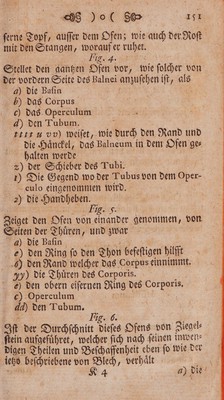 ) o (
151
ferne Topf, ausser dem Ofen; wie auch der Rost
mit den Stangen, worauf er ruhet.
Fig. 4.
Stellet den gantzen Ofen vor, wie solcher von
der vordern Seite des Balnei anzusehen ist, als
a) die Basin
b) das Corpus
c) das Operculum
d) den Tubum.
t t t t u v) weiset, wie durch den Rand und
die Hänckel, das Balneum in dem Ofen ge-
halten werde
z) der Schieber des Tubi.
t) Die Gegend wo der Tubus von dem Oper-
culo eingenommen wird.
2) die Handheben.
Fig. 5.
Zeiget den Ofen von einander genommen, von
Seiten der Thüren, und zwar
a) die Basin
e) den Ring so den Thon befestigen hilfft
b) den Rand welcher das Corpus einnimmt.
yy) die Thüren des Corporis.
e) den obern eisernen Ring des Corporis.
c) Operculum
dd) den Tubum.
Fig. 6.
Ist der Durchschnitt dieses Ofens von Ziegel-
stein aufgeführet, welcher sich nach seinen inwen-
digen Theilen und Beschaffenheit eben so wie der
letz beschriebene von Blech, verhält
K 4
a) die